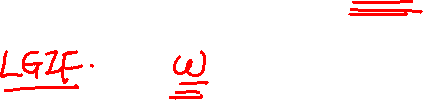 LGZF. ω